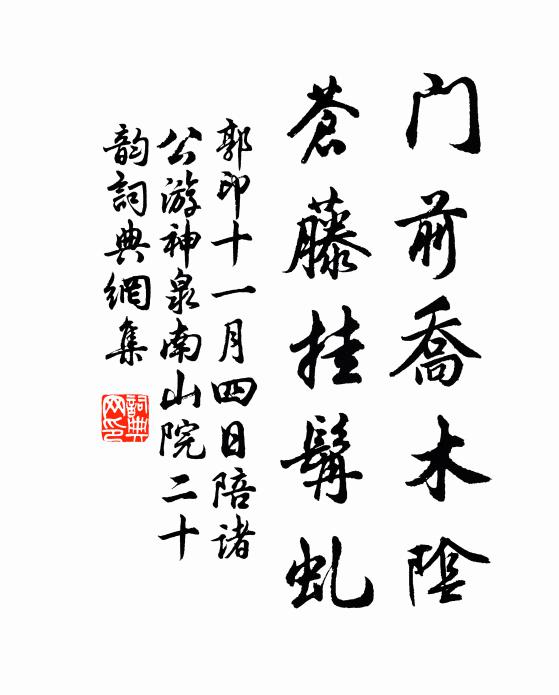 门前喬木陰
蒼藤挂髯虬
郭印十一月四日陪诸
公游神泉南山院二十
韵詞典網集
詞典
网印